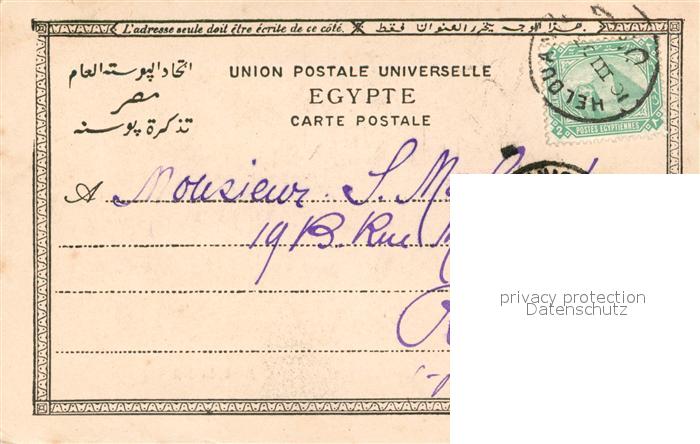 L'adresse seule doit être écrite de ce côté.
هذا الوجه يحرر العنوان فقط
اتحاد البوسته العام
مصر
تذكرة بوسته
UNION POSTALE UNIVERSELLE
EGYPTE
CARTE POSTALE
HELOUAN
2 POSTES EGYPTIENNES ٢
A Monsieur S.
19 B. Rue
privacy protection
Datenschutz